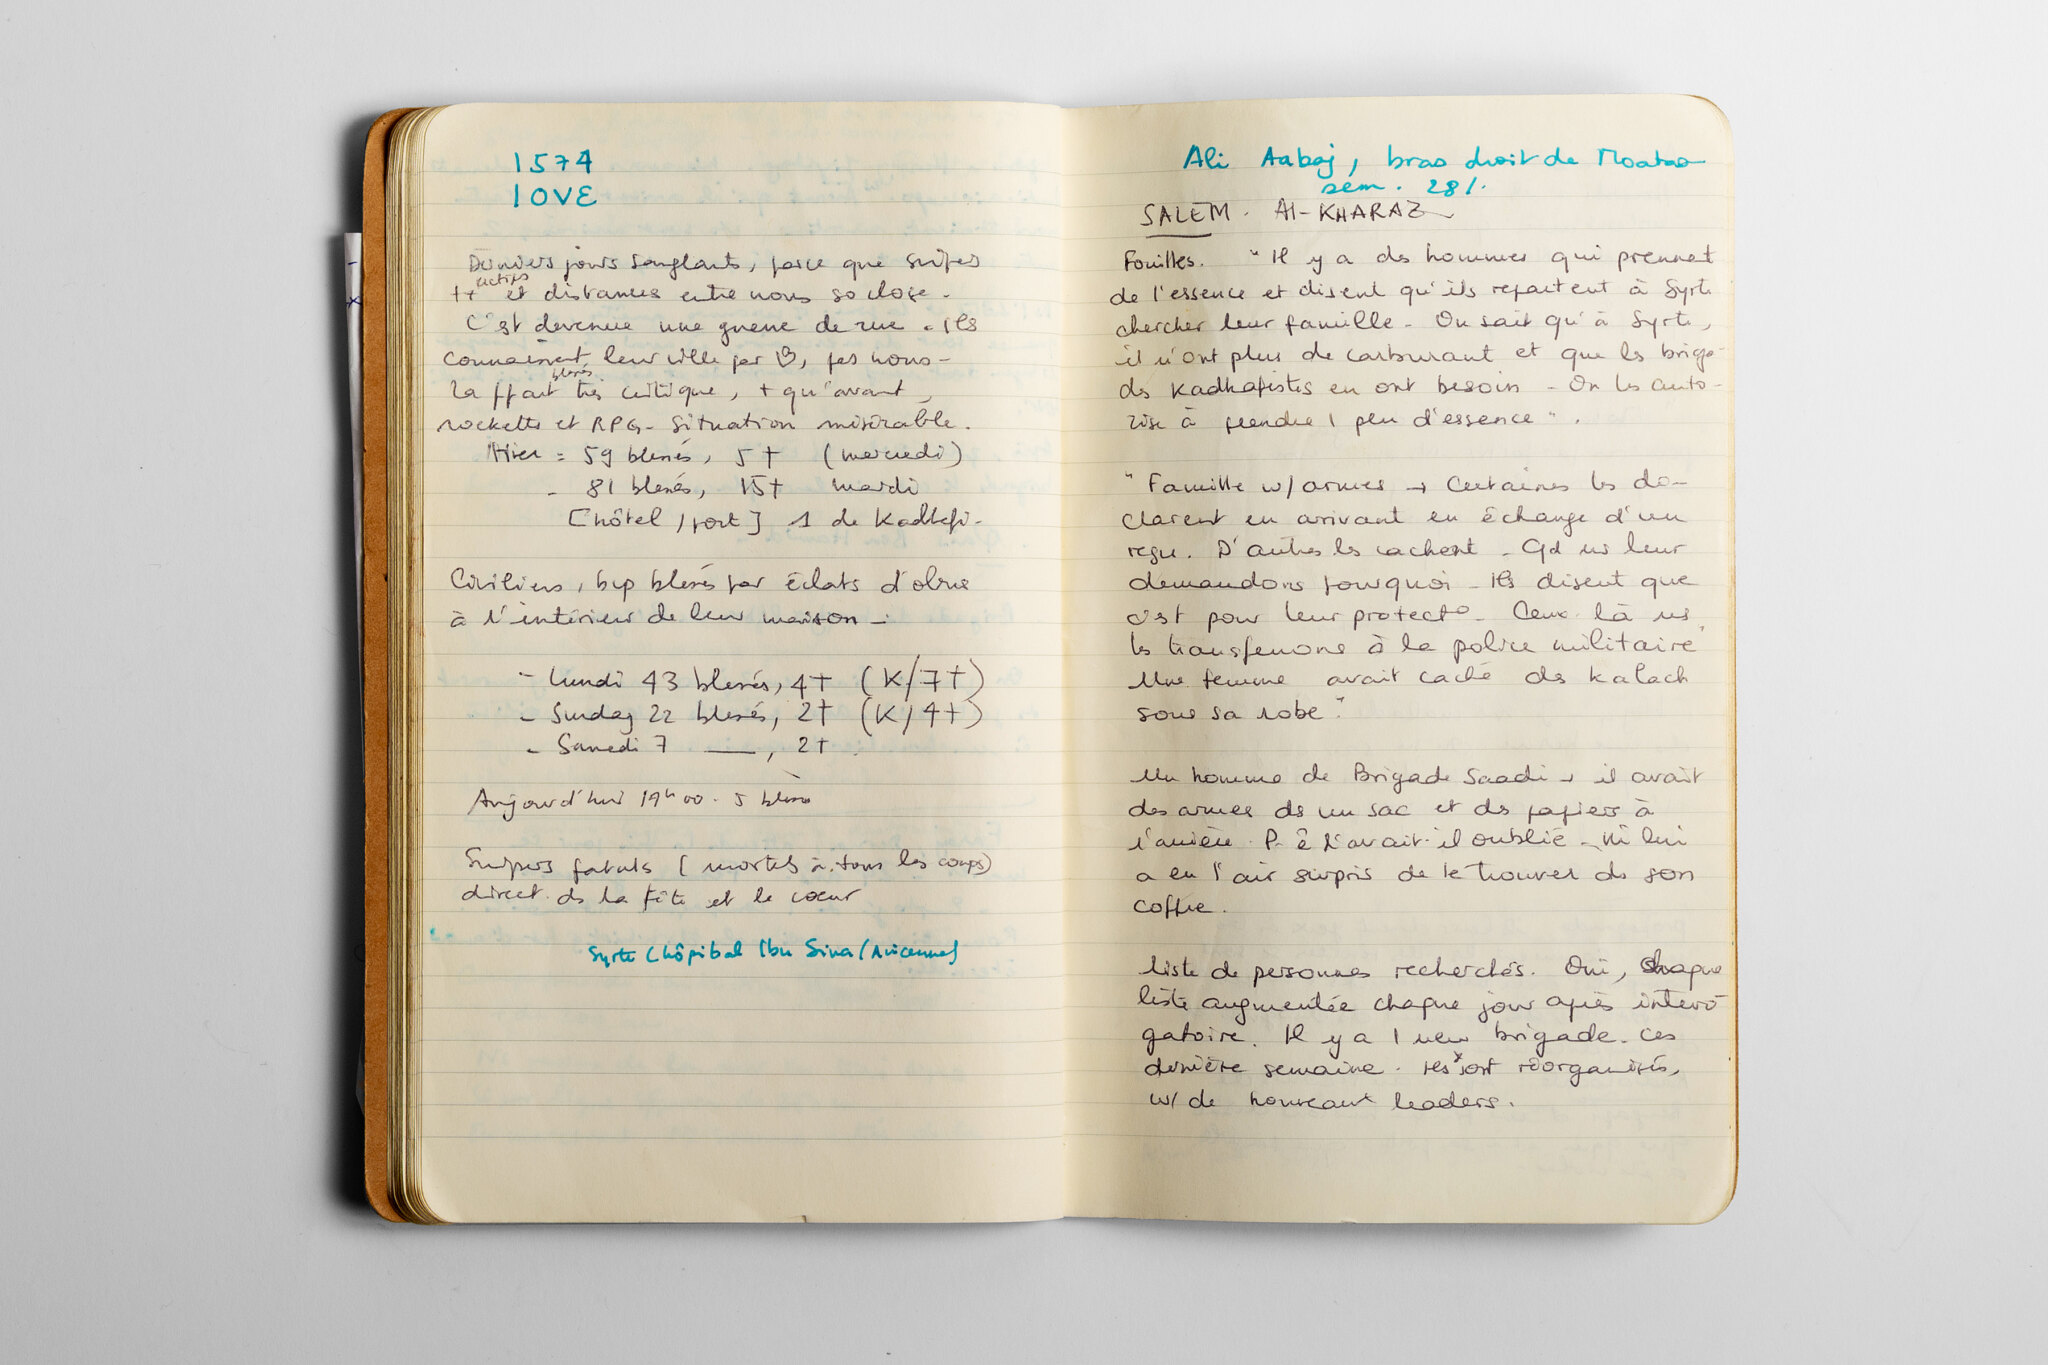 1574
LOVE
Derniers jours sanglants, parce que snipers
++ actifs et distances entre nous so close.
C'est devenue une guerre de rue. Ils
connaissent leur ville par ♡, pas nous -
La ppart blessés très critique, + qu'avant,
rockette et RPG - Situation misérable.
Hier = 59 blessés, 5† (mercredi)
- 81 blessés, 15† mardi
[hôtel / port] 1 de Kadhafi -
Civiliens, bcp blessés par éclats d'obus
à l'intérieur de leur maison -
- Lundi 43 blessés, 4† (K/7†)
- Sunday 22 blessés, 2† (K/4†)
- Samedi 7 —, 2†
Aujourd'hui 19h00. 5 blessés
Snipers fatals (mortels à tous les coups)
direct. ds la tête et le cœur
Syrte (hôpital Ibn Sina (Avicenne)
Ali Aabaj, bras droit de
sem. 28/.
SALEM. Al-KHARAZ
Fouilles. "Il y a des hommes qui prennent
de l'essence et disent qu'ils repartent à Syrte
chercher leur famille - On sait qu'à Syrte,
il n'ont plus de carburant et que les briga-
des Kadhafistes en ont besoin - On les auto-
rise à prendre 1 peu d'essence".
"Famille w/ armes → Certaines les dé-
clarent en arrivant en échange d'un
reçu. D'autres les cachent - Qd ns leur
demandons pourquoi - Ils disent que
c'est pour leur protect° - Ceux-là ns
les transferrons à la police militaire"
Une femme avait caché des kalach
sous sa robe".
Un homme de Brigade Saadi → il avait
des armes ds un sac et des papiers à
l'arrière. P-ê l'avait-il oublié - Ni lui
a eu l'air surpris de le trouver ds son
coffre.
Liste de personnes recherchés. Oui, chaque
liste augmentée chaque jour après intero-
gatoire. Il y a 1 new brigade. ces
dernière semaine. Ils sont réorganisés,
w/ de nouveaux leaders.